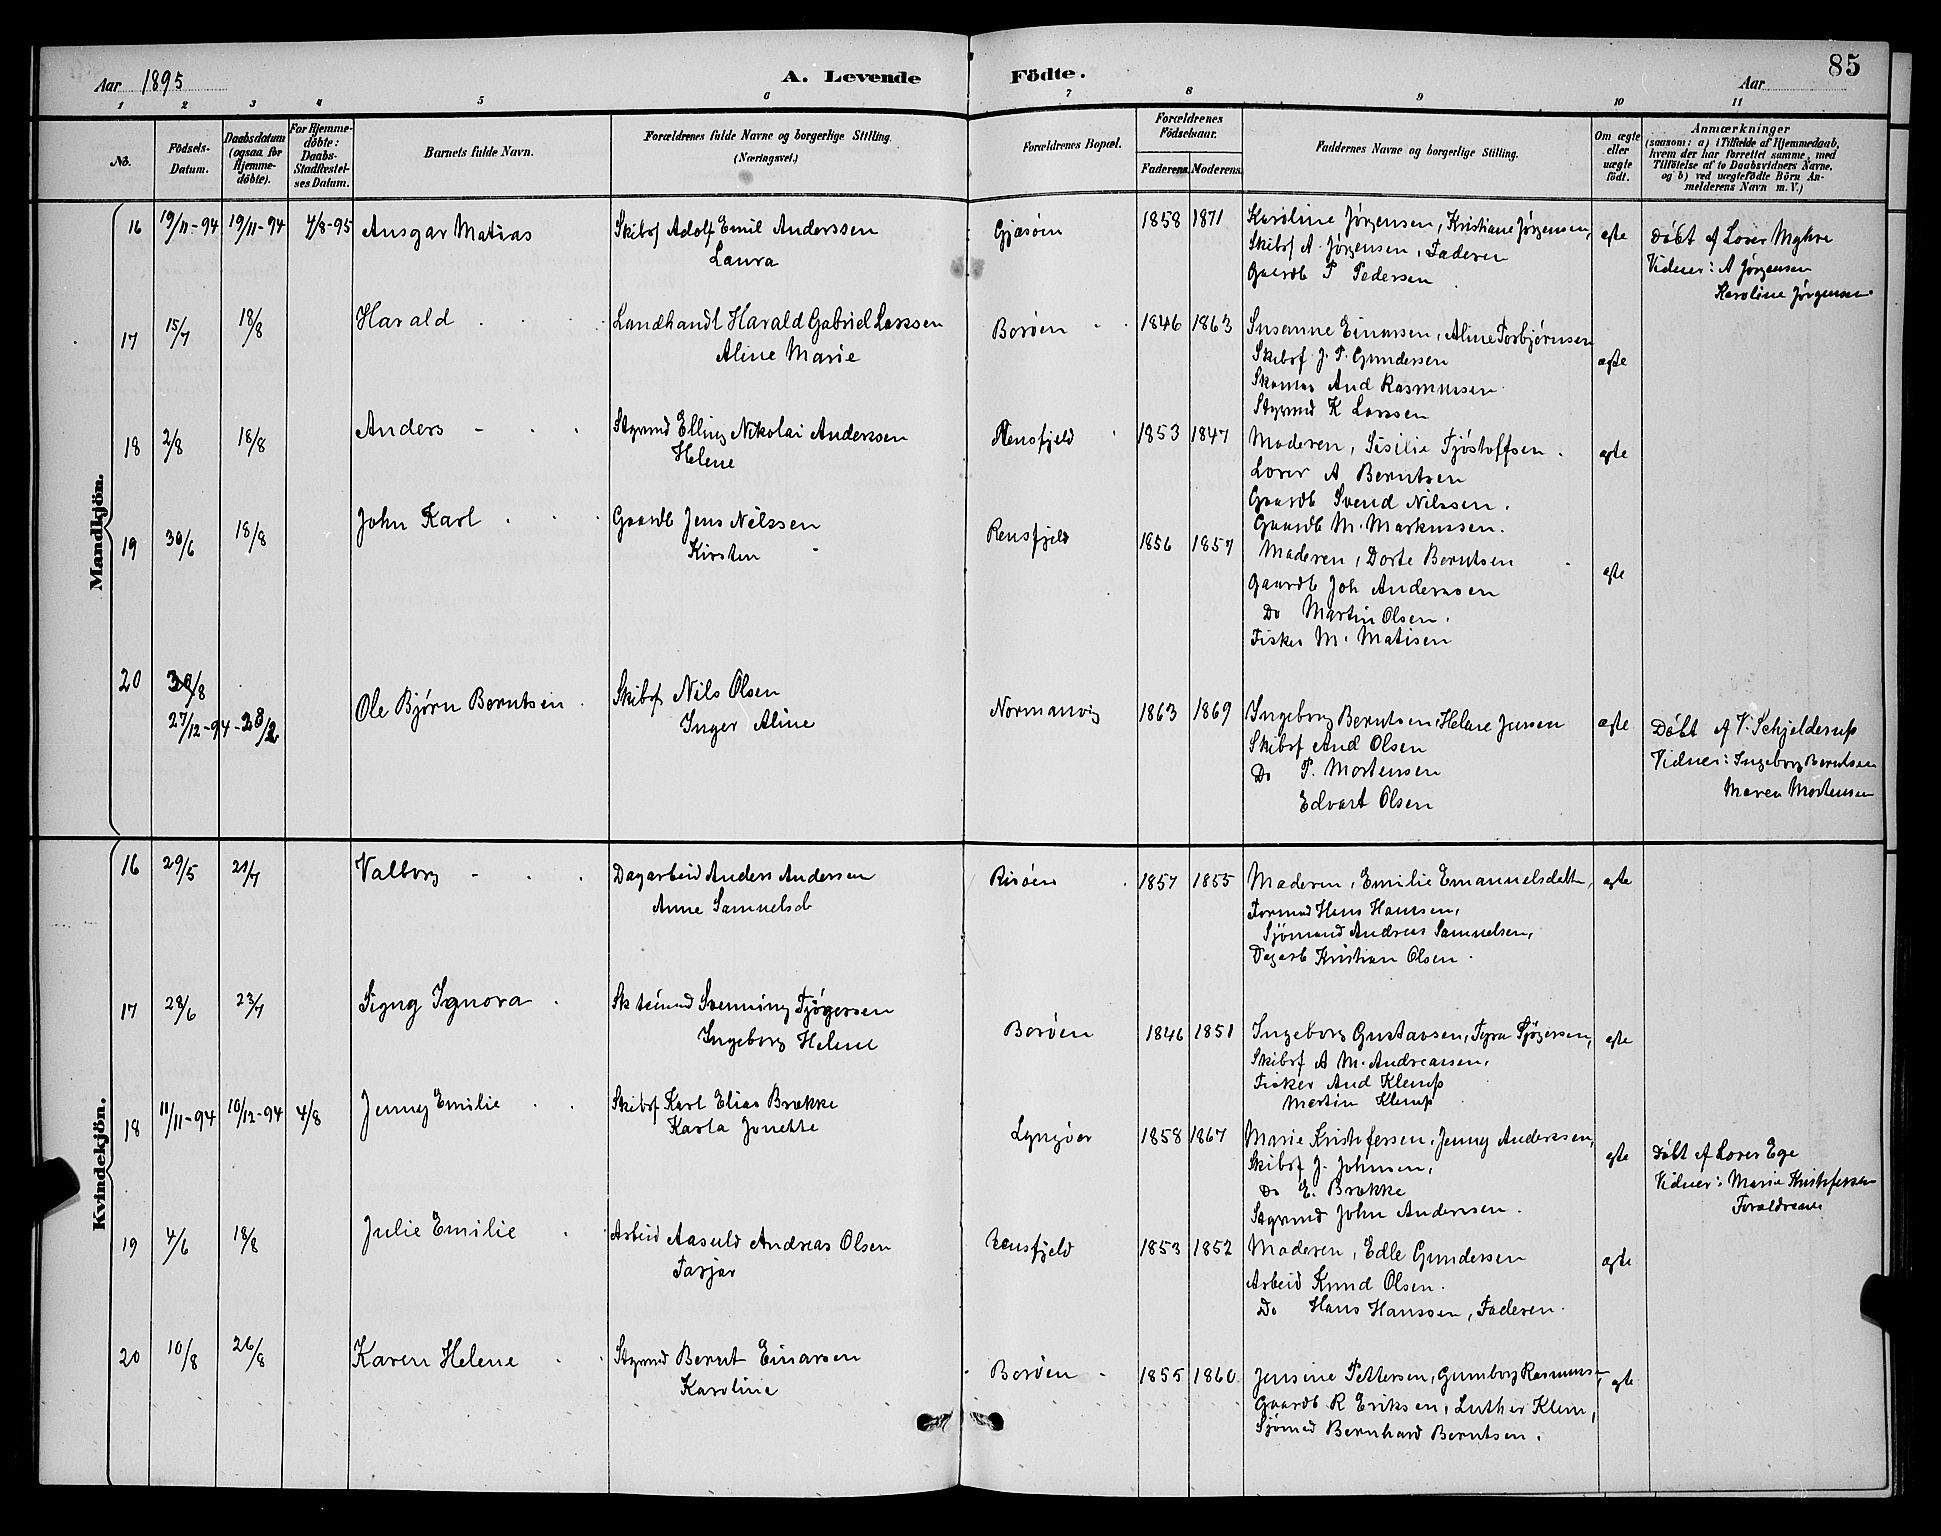 85
Aar 1895
A. Levende
Födte.
Aar
1 2 3 4 5 6 7 8 9 10 11
No.
Födsels-Datum.
Daabsdatum (ogsaa for Hjemme-döbte).
For Hjemme-döbte: Daabs-Stadfæstel-ses Datum.
Barnets fulde Navn.
Forældrenes fulde Navne og borgerlige Stilling. (Næringsvei.)
Forældrenes Bopæl.
Forældrenes Födselsaar.
Faderens. Moderens.
Faddernes Navne og borgerlige Stilling.
Om ægte eller uægte födt.
Anmærkninger
(saasom: a) i Tilfælde af Hjemmedaab,
hvem der har forrettet samme, med
Tilföielse af to Daabsvidners Navne,
og b) ved uægtefödte Börn An-
melderens Navn m. V.)
Mandkjön.
16 19/11-94 19/11-94 4/8-95 Ansgar Matias Skibsf Adolf Emil Anderssen Gjæsøen 1858 1871 Karoline Jørgensen, Kristiane Jørgensen, ægte Døbt af Loser Myhre
Laura Skibsf A. Jørgensen, Faderen Vidner: A Jørgensen
Gaardb P Pedersen Karoline Jørgensen
17 15/7 18/8 Harald Landhandl Harald Gabriel Larssen Borøen 1846 1863 Susanne Einarsen, Aline Torbjørnsen ægte
Aline Marie Skibsf J. P. Gundersen
And Rasmussen
Styrmd K Larssen
18 2/8 18/8 Anders Styrmd Elling Nikolai Anderssen Rensfjeld 1853 1847 Moderen, Sisilie Tjøstoffsen ægte
Helene Loser A Berntsen
Gaardb Svend Nilssen.
Gaardb M. Markussen.
19 30/6 18/8 John Karl Gaardb Jens Nilssen Rensfjeld 1856 1857 Moderen, Dorte Berntsen ægte
Kirsten Gaardb Joh Anderssen
Do Martin Olsen.
Fisker M. Matisen
20 27/12-94 -28/2 Ole Bjørn Berntsen Skibsf Nils Olsen Normanvig 1863 1869 Ingeborg Berntsen, Helene Jensen ægte Døbt af V. Schjelderup
Inger Aline Skibsf And Olsen Vidner: Ingeborg Berntsen
Do P. Mortensen Maren Mortensen
Edvart Olsen
Kvindekjön.
16 29/5 21/7 Valborg Dagarbeid Anders Andersen Risøen 1857 1855 Moderen, Emilie Emanuelsdatt, ægte
Anne Samuelsd Formand Hans Hansen,
Sjømand Andreas Samuelsen,
Dagarb Kristian Olsen.
17 28/6 23/7 Signy Ignora Svenning Tjøgersen Borøen 1846 1851 Ingeborg Gustavsen, Tyra Tjøgersen, ægte
Ingeborg Helene Skibsf A M. Andreassen,
Fisker And Klemp
Martin Klemp
18 11/11-94 10/12-94 4/8 Jenny Emilie Skibsf Karl Elias Brække Lyngøer 1858 1867 Marie Kristofersen, Jenny Anderssen, ægte Døbt af Loser Ege
Karla Jonette Skibsf J. Johnsen, Vidner: Marie Kristofersen
Do E. Brække Forældrene
Styrmd John Anderssen.
19 4/6 18/8 Julie Emilie Arbeid Aasuld Andreas Olsen Rensfjeld 1853 1852 Moderen, Edle Gundersen ægte
Tarjer Arbeid Knud Olsen.
Do Hans Hanssen, Faderen.
20 10/8 26/8 Karen Helene Styrmd Bernt Einarsen Borøen 1855 1860 Jensine Pettersen, Gumborg Rasmuss ægte
Karoline Gaardb R Eriksen, Luther Klem,
Sjømd Bernhard Berntsen.